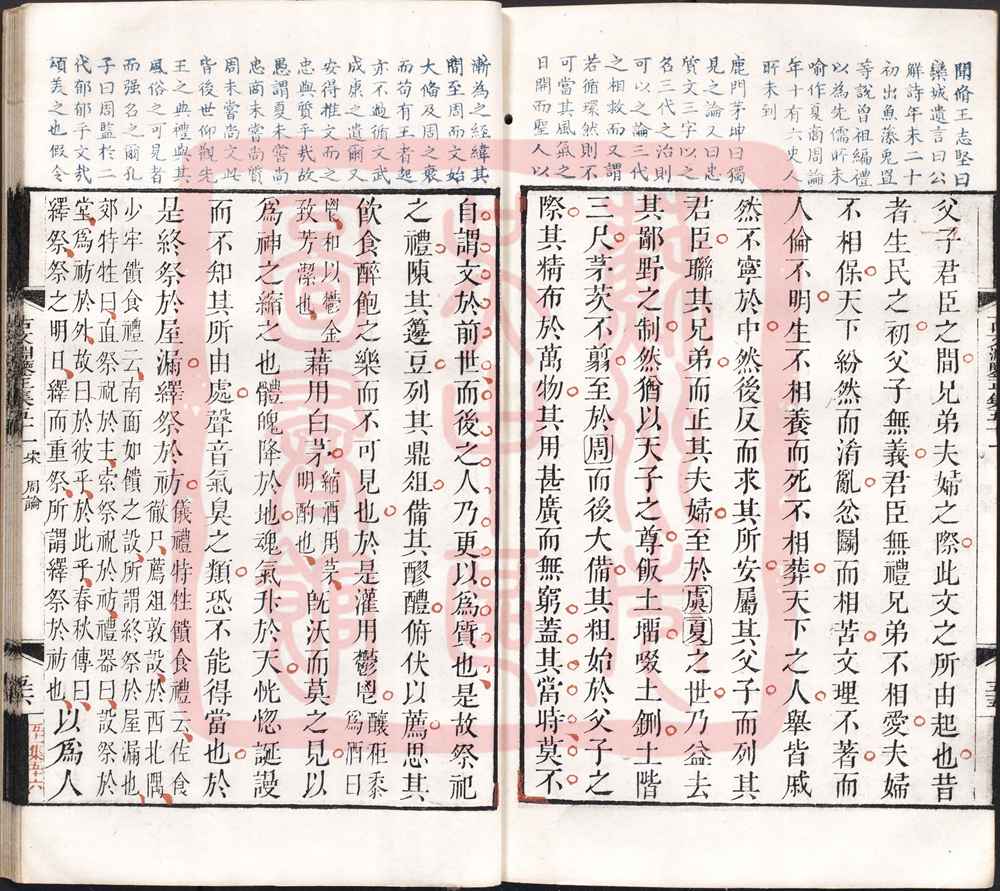 開脩王志堅曰
欒城遺言曰公
解詩年未二十
初出魚藻兎罝
等說曽祖編禮
以為先儒所未
喻作夏商周論
年十有六古人
所未到
鹿門茅坤曰獨
見之論又曰忠
質文三字以之
名三代之治則
可以之論三代
之相救而又謂
若循環然則不
可當其風氣之
日開而聖人以
父子君臣之間兄弟夫婦之際此文之所由起也昔
者生民之初父子無義君臣無禮兄弟不相愛夫婦
不相保天下紛然而淆亂忿鬭而相苦文理不著而
人倫不明生不相養而死不相葬天下之人舉皆戚
然不寧於中然後反而求其所安屬其父子而列其
君臣聯其兄弟而正其夫婦至於虞夏之世乃益去
其鄙野之制然猶以天子之尊飯土塯啜土鉶土階
三尺茅茨不翦至於周而後大備其粗始於父子之
際其精布於萬物其用甚廣而無窮蓋其當時莫不
漸為之經緯其
間至周而文始
大備及周之衰
而苟有王者起
亦不過循文武
成康之遺爾又
安得推文而之
忠與質乎哉故
愚謂夏未嘗尚
忠商未嘗尚質
周未嘗尚文此
皆後世仰觀先
王之典禮與其
風俗之可見者
而强名之爾孔
子曰周監於二
代郁郁乎文哉
頌美之也假令
自謂文於前世而後之人乃更以爲質也是故祭祀
之禮陳其籩豆列其鼎俎備其醪醴俯伏以薦思其
飲食醉飽之樂而不可見也於是灌用鬱鬯釀秬黍爲酒曰
鬯和以鬱金致芳潔也藉用白茅縮酒用茅明酌也旣沃而莫之見以
爲神之縮之也體魄降於地魂氣升於天恍惚誕謾
而不知其所由處聲音氣臭之類恐不能得當也於
是終祭於屋漏繹祭於祊儀禮特牲饋食禮云佐食徹尸薦俎敦設於西北隅
少牢饋食禮云南面如饋之設所謂終祭於屋漏也
郊特牲曰直祭祝於主索祭祝於祊禮器曰設祭於
堂爲祊於外故曰於彼乎於此乎春秋傳曰
繹祭祭之明日繹而重祭所謂繹祭於祊也以爲人
周論